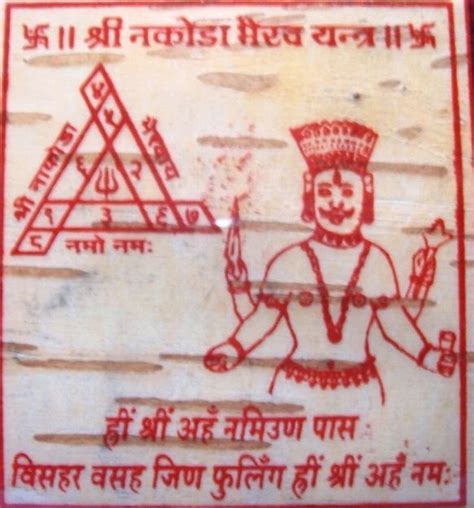 卐 ॥ श्री नकोडा भैरव यन्त्र ॥ 卐
श्री नाकोडा
भैरवाय
४
५
६ २
१ ३ ६ ७
८
नमो नमः
ह्रीं श्रीं अहँ नमिउण पास
विसहर वसह जिण फुलिँग ह्रीं श्रीं अहँ नमः